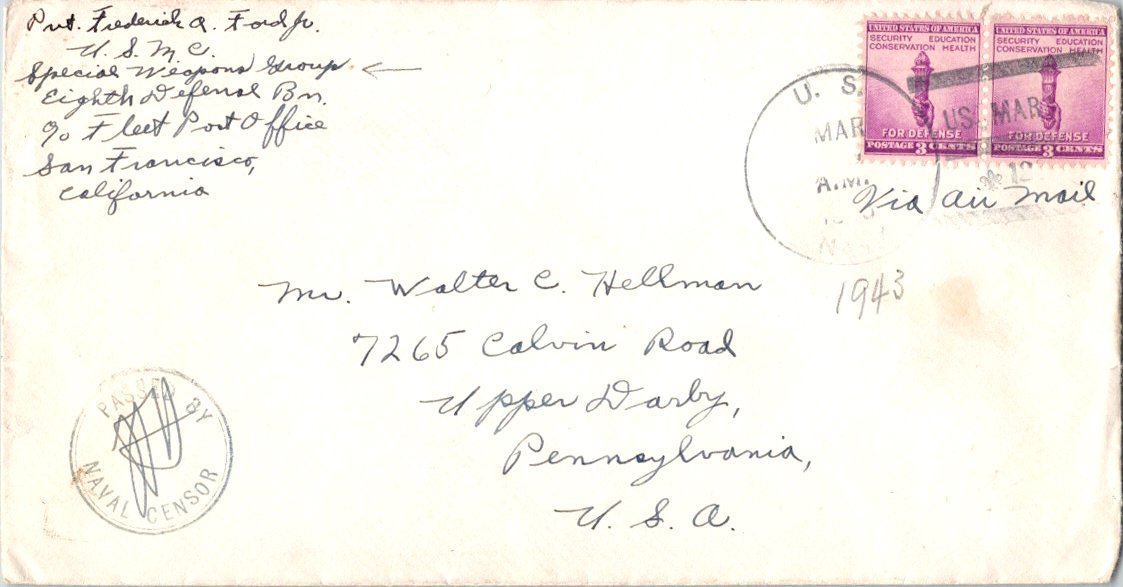 Pvt. Frederick A. Ford Jr.
U. S. M. C.
Special Weapons Group
Eighth Defense Bn.
℅ Fleet Post Office
San Francisco,
California
UNITED STATES OF AMERICA
SECURITY EDUCATION
CONSERVATION HEALTH
FOR DEFENSE
POSTAGE 3 CENTS
UNITED STATES OF AMERICA
SECURITY EDUCATION
CONSERVATION HEALTH
FOR DEFENSE
POSTAGE 3 CENTS
U. S.
MAR
A.M.
US. MAR
12
Via Air Mail
1943
Mr. Walter C. Hellman
7265 Calvin Road
Upper Darby,
Pennsylvania,
U. S. A.
PASSED BY
NAVAL CENSOR